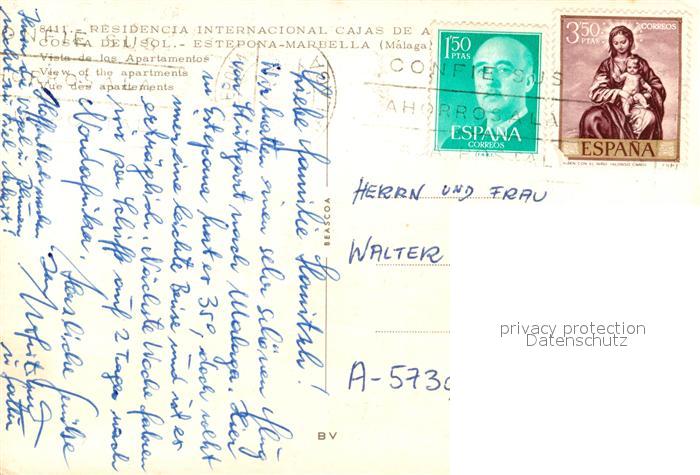 8411. - RESIDENCIA INTERNACIONAL CAJAS DE A
COSTA DEL SOL. - ESTEPONA-MARBELLA (Málaga)
Vista de los Apartamentos
View of the apartments
Vue des apartements
1'50 PTAS
ESPAÑA
CORREOS
3'50 PTAS
CORREOS
ESPAÑA
CONFIE SUS
AHORROS A LA
Liebe Familie
Wir hatten einen sehr schönen Flug
von Stuttgart nach Malaga. Hier
in Estepona hat es 35°, doch weht
immer eine leichte Brise und ist es
erträglich. Nächste Woche fahren
wir per Schiff auf 2 Tage nach
Nordafrika.
Herzliche Grüße
BEASCOA
BV
HERRN UND FRAU
WALTER
A-573
privacy protection
Datenschutz